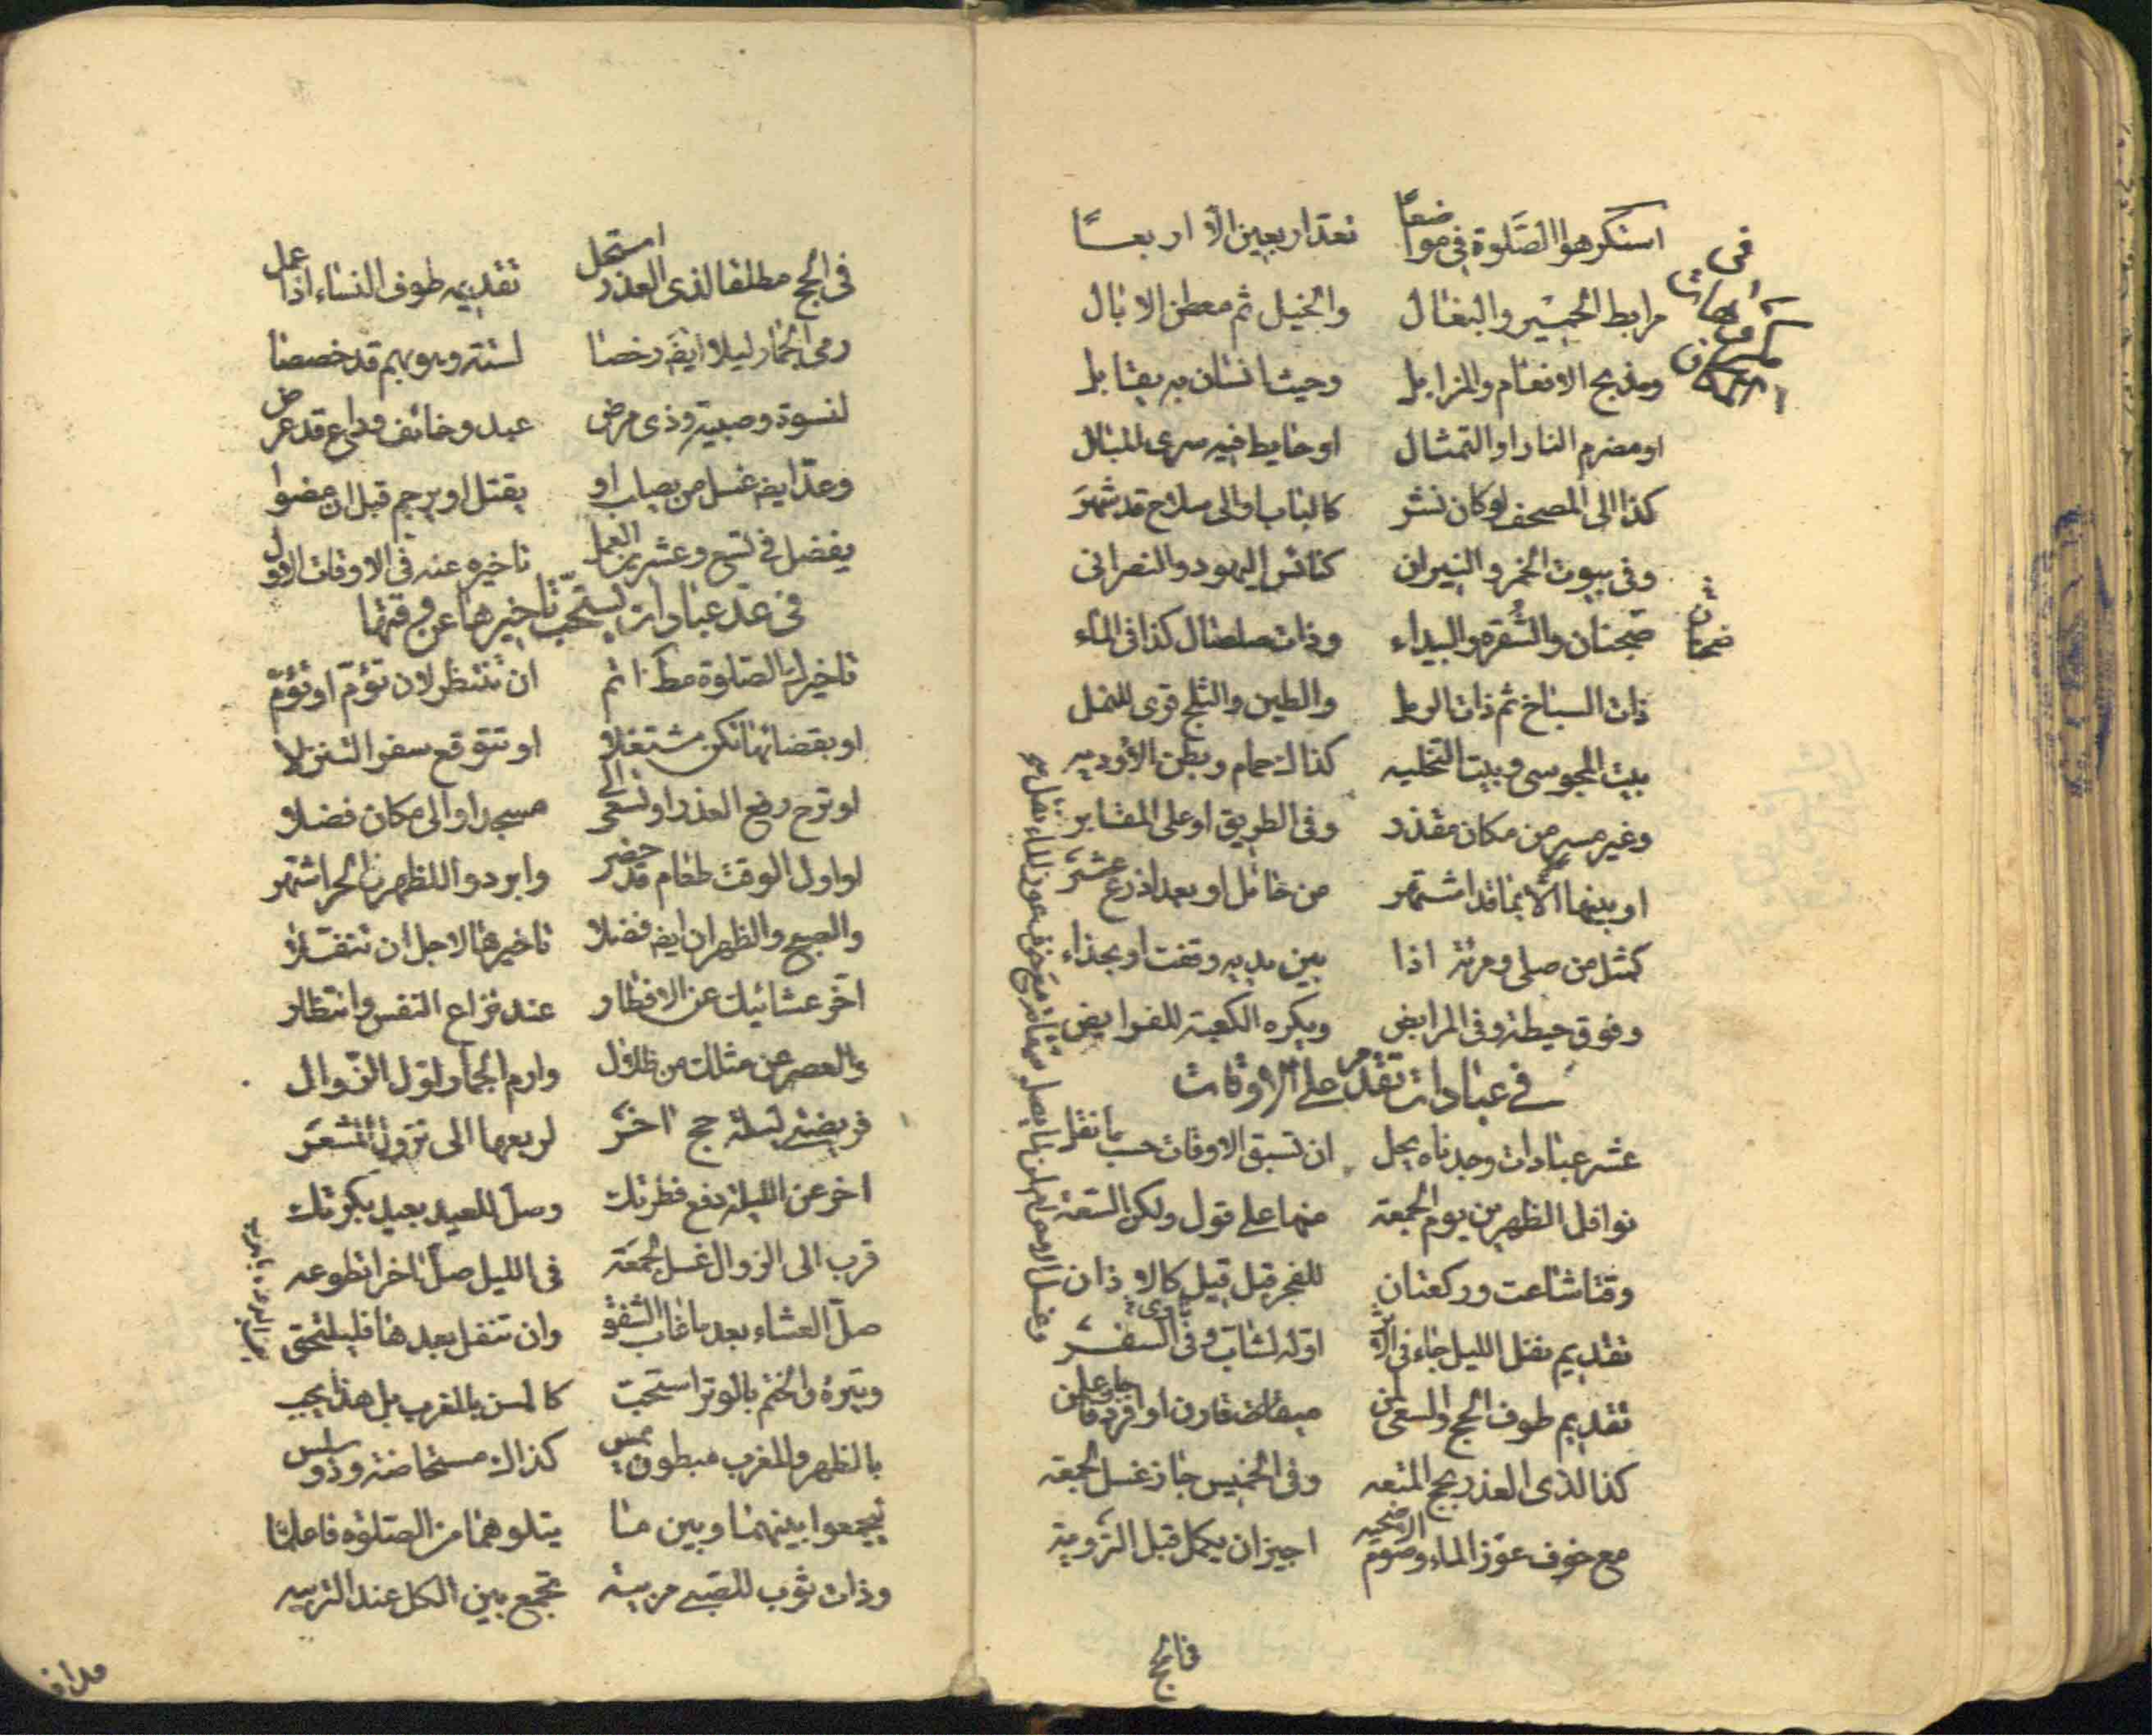 في مكروهات المكان
استكرهوا الصلوة في مواضعًا تعدّ اربعين الا اربعًا
مرابط الحمير والبغال والخيل ثم معطن الابال
ومذبح الانعام والمزابل وحيث انسان به يقابل
او مضرم النار او التمثال او حايط فيه سرى للبال
كذا الى المصحف لو كان نشر كالباب او الى سلاح قد شهر
وفي بيوت الخمر والنيران كنائس اليهود والنصراني
ضجنان والشقرة والبيداء وذات صلصال كذا في الماء
ضجنان
ذات السباخ ثم ذات الرمل والطين والثلج قرى للنمل
بيت المجوسي وبيت التخليه كذاك حمام وبطن الأوديه
وغير مسر من مكان مقذر وفي الطريق او على المقابر
او بينها الا بما قد اشتهر من حائل او بعد اذرع عشر
كمثل من صلى ومرئة اذا بين يديه وقفت او بحذاء
وفوق حيطة وفي المرابض ويكره الكعبة للفرايض
في عبادات تقدم على الاوقات
عشر عبادات وجدناه يحل ان تسبق الاوقات حسب ما نقل
نوافل الظهر من يوم الجمعة منها على قول ولكن السعة
وقتا شاعت وركعتان للفجر قبل قيل كالاذان
تقديم نفل الليل جاء في الاثر اوله لشاب وفي السفر
تقديم طوف الحج والسعي لمن ميقات قارن او افرد
كذا لذي العذر بحج المتعه وفي الخميس جاز غسل الجمعة
مع خوف عوز الماء وصوم الاضحيه اجيز ان يكمل قبل التروية
في الحج
في الحج مطلقا لذي العذر استحل تقديم طوف النساء اذا عمل
رمي الجمار ليلا ايضا رخصا لستة وهو بهم قد خصصا
لنسوة وصبية وذي مرض عبد وخائف وراع قد عرض
وعدّ ايضا غسل من يصاب او بقتل او برجم قبل ان مضوا
يفضل في تسع وعشر العمل تاخيره عنه في الاوقات الاول
في عدّ عبادات يستحبّ تاخيرها عن وقتها
تاخيرك الصلوة مثم ان تنتظر لان تؤمّ او تؤمّ
او بقضائها تكن مشتغلا او تتوقع سفرا لتنزلا
او ترج رفع العذر او تسعى الى مسجد او الى مكان فضلا
او اول الوقت طعام قد حضر وابردوا الظهر في الحر اشتهر
والصبح والظهران ايضا فضلا تاخيرها لاجل ان تنتفلا
اخر عشائيك عن الافطار عند نزاع النفس وانتظار
والعصر عن مثلك من ظلال وارم الجمار لول الزوال
فريضتي ليلة حج اخر لربعها الى نزول المشعر
اخر عن الليلة دفع فطرتك وصل للعيد بعيد بكرتك
قرب الى الزوال غسل الجمعة في الليل صل اخرا تطوعه
صل العشاء بعد ما غاب الشفق وان تنفل بعدها فليلتحق
وتيرة والختم بالوتر استحبّ كالمسن بالمغرب بل هذا يجب
بالظهر والمغرب مبطون كذاك مستحاضة وذو سلس
ليجمعوا بينهما وبين ما يتلوهما من الصلوة فاعلما
وذات ثوب للصبي مربيه تجمع بين الكل عند التربيه